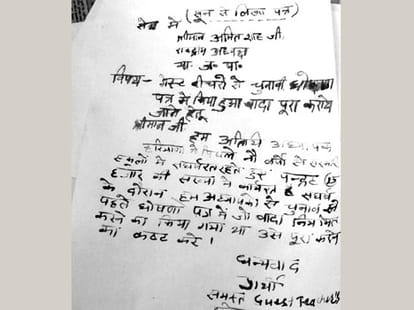 सेवा में (खून से लिखा पत्र)
श्रीमान अमित शाह जी,
राष्ट्रीय अध्यक्ष
भा. ज. पा.
विषय - गेस्ट टीचरों से चुनावी घोषणा
पत्र में किया हुआ वादा पूरा कराये
जाने हेतू
श्रीमान जी
हम अतिथी अध्यापक
हरियाणा में पिछले नौ वर्षों से सरकारी
स्कूलों में संघर्षरत रहते हुए पन्द्रह (15)
हजार की संख्या में कार्यरत है संघर्ष
के दौरान हम अध्यापकों से चुनाव से
पहले घोषणा पत्र में जो वादा नियमित
करने का किया गया था उसे पूरा करने
का कष्ट करे।
धन्यवाद
प्रार्थी
समस्त Guest Teachers